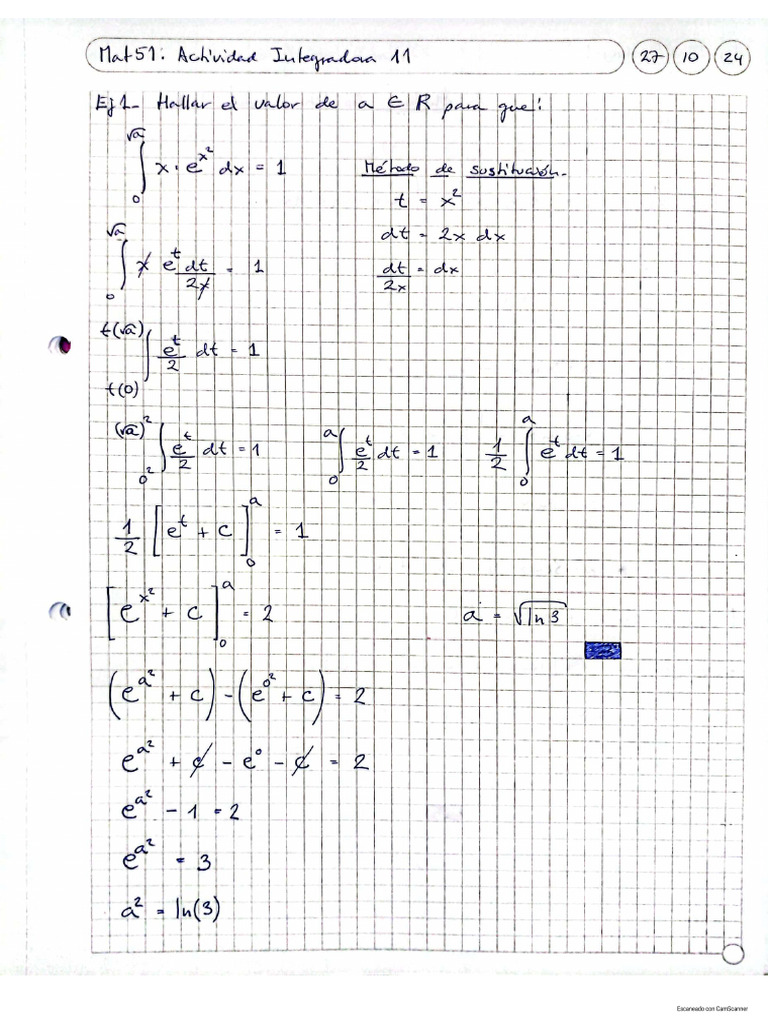 Mat51: Actividad Integradora 11 27 10 24
Ej1- Hallar el valor de a ∈ R para que:
∫_0^√a x · e^(x^2) dx = 1
Método de sustitución-
t = x^2
dt = 2x dx
dt/2x = dx
∫_0^√a x e^t dt/2x = 1
∫_t(0)^t(√a) e^t/2 dt = 1
∫_0^2^(√a)^2 e^t/2 dt = 1 ∫_0^a e^t/2 dt = 1 1/2 ∫_0^a e^t dt = 1
1/2 [e^t + c]_0^a = 1
[e^(x^2) + c]_0^a = 2
a = √ln 3
(e^(a^2) + c) - (e^(0^2) + c) = 2
e^(a^2) + c - e^0 - c = 2
e^(a^2) - 1 = 2
e^(a^2) = 3
a^2 = ln(3)
Escaneado con CamScanner